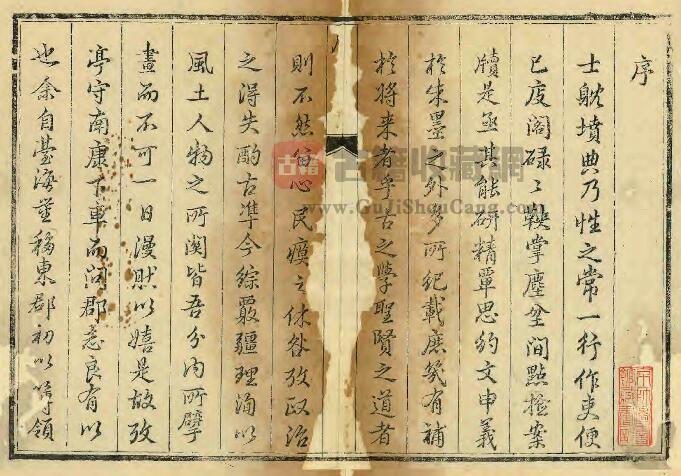 序
士躭墳典乃性之常一行作吏便
已庋閣碌〻鞅掌塵坌間點撿案
牘是亟其能研精覃思約文申義
於朱墨之外多所紀載庶幾有補
於将来者乎古之學聖賢之道者
則不然心民瘼之休咎攷政治
之得失酌古準今綜覈疆理以
風土人物之所関皆吾分内所擘
畫而不可一日漫然以嬉是故攷
亭守南康下車而问郡志良有以
也余自臺海量移東郡初以領
古籍
古籍收藏網
www.GuJiShouCang.com